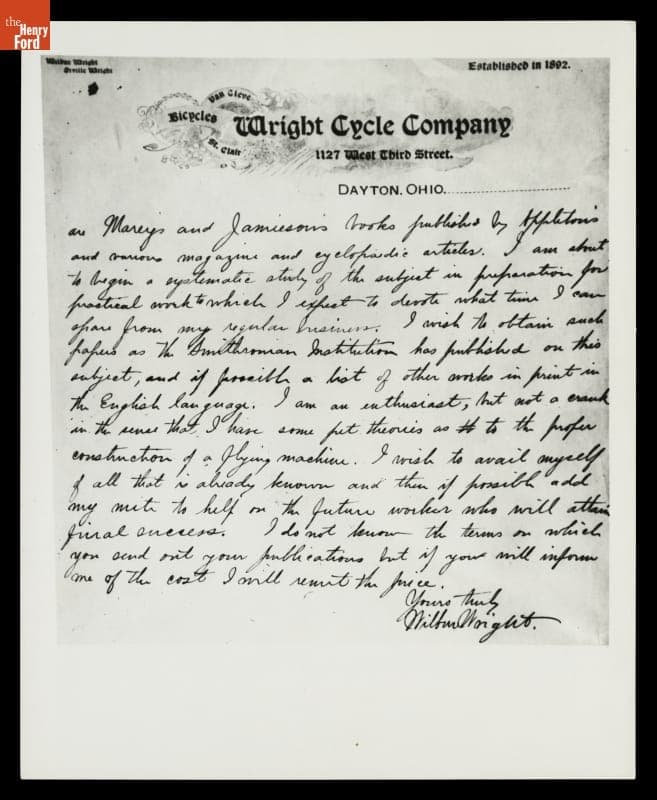 the
Henry
Ford
Wilbur Wright
Orville Wright
Established in 1892.
Van Cleve
Bicycles
St. Clair
Wright Cycle Company
1127 West Third Street.
DAYTON, OHIO.
are Mareys and Jamieson's books published by Appleton's
and various magazine and cyclopaedic articles. I am about
to begin a systematic study of the subject in preparation for
practical work to which I expect to devote what time I can
spare from my regular business. I wish to obtain such
papers as the Smithsonian Institution has published on this
subject, and if possible a list of other works in print in
the English language. I am an enthusiast, but not a crank
in the sense that I have some pet theories as to the proper
construction of a flying machine. I wish to avail myself
of all that is already known and then if possible add
my mite to help on the future worker who will attain
final success. I do not know the terms on which
you send out your publications but if you will inform
me of the cost I will remit the price.
Yours truly
Wilbur Wright.